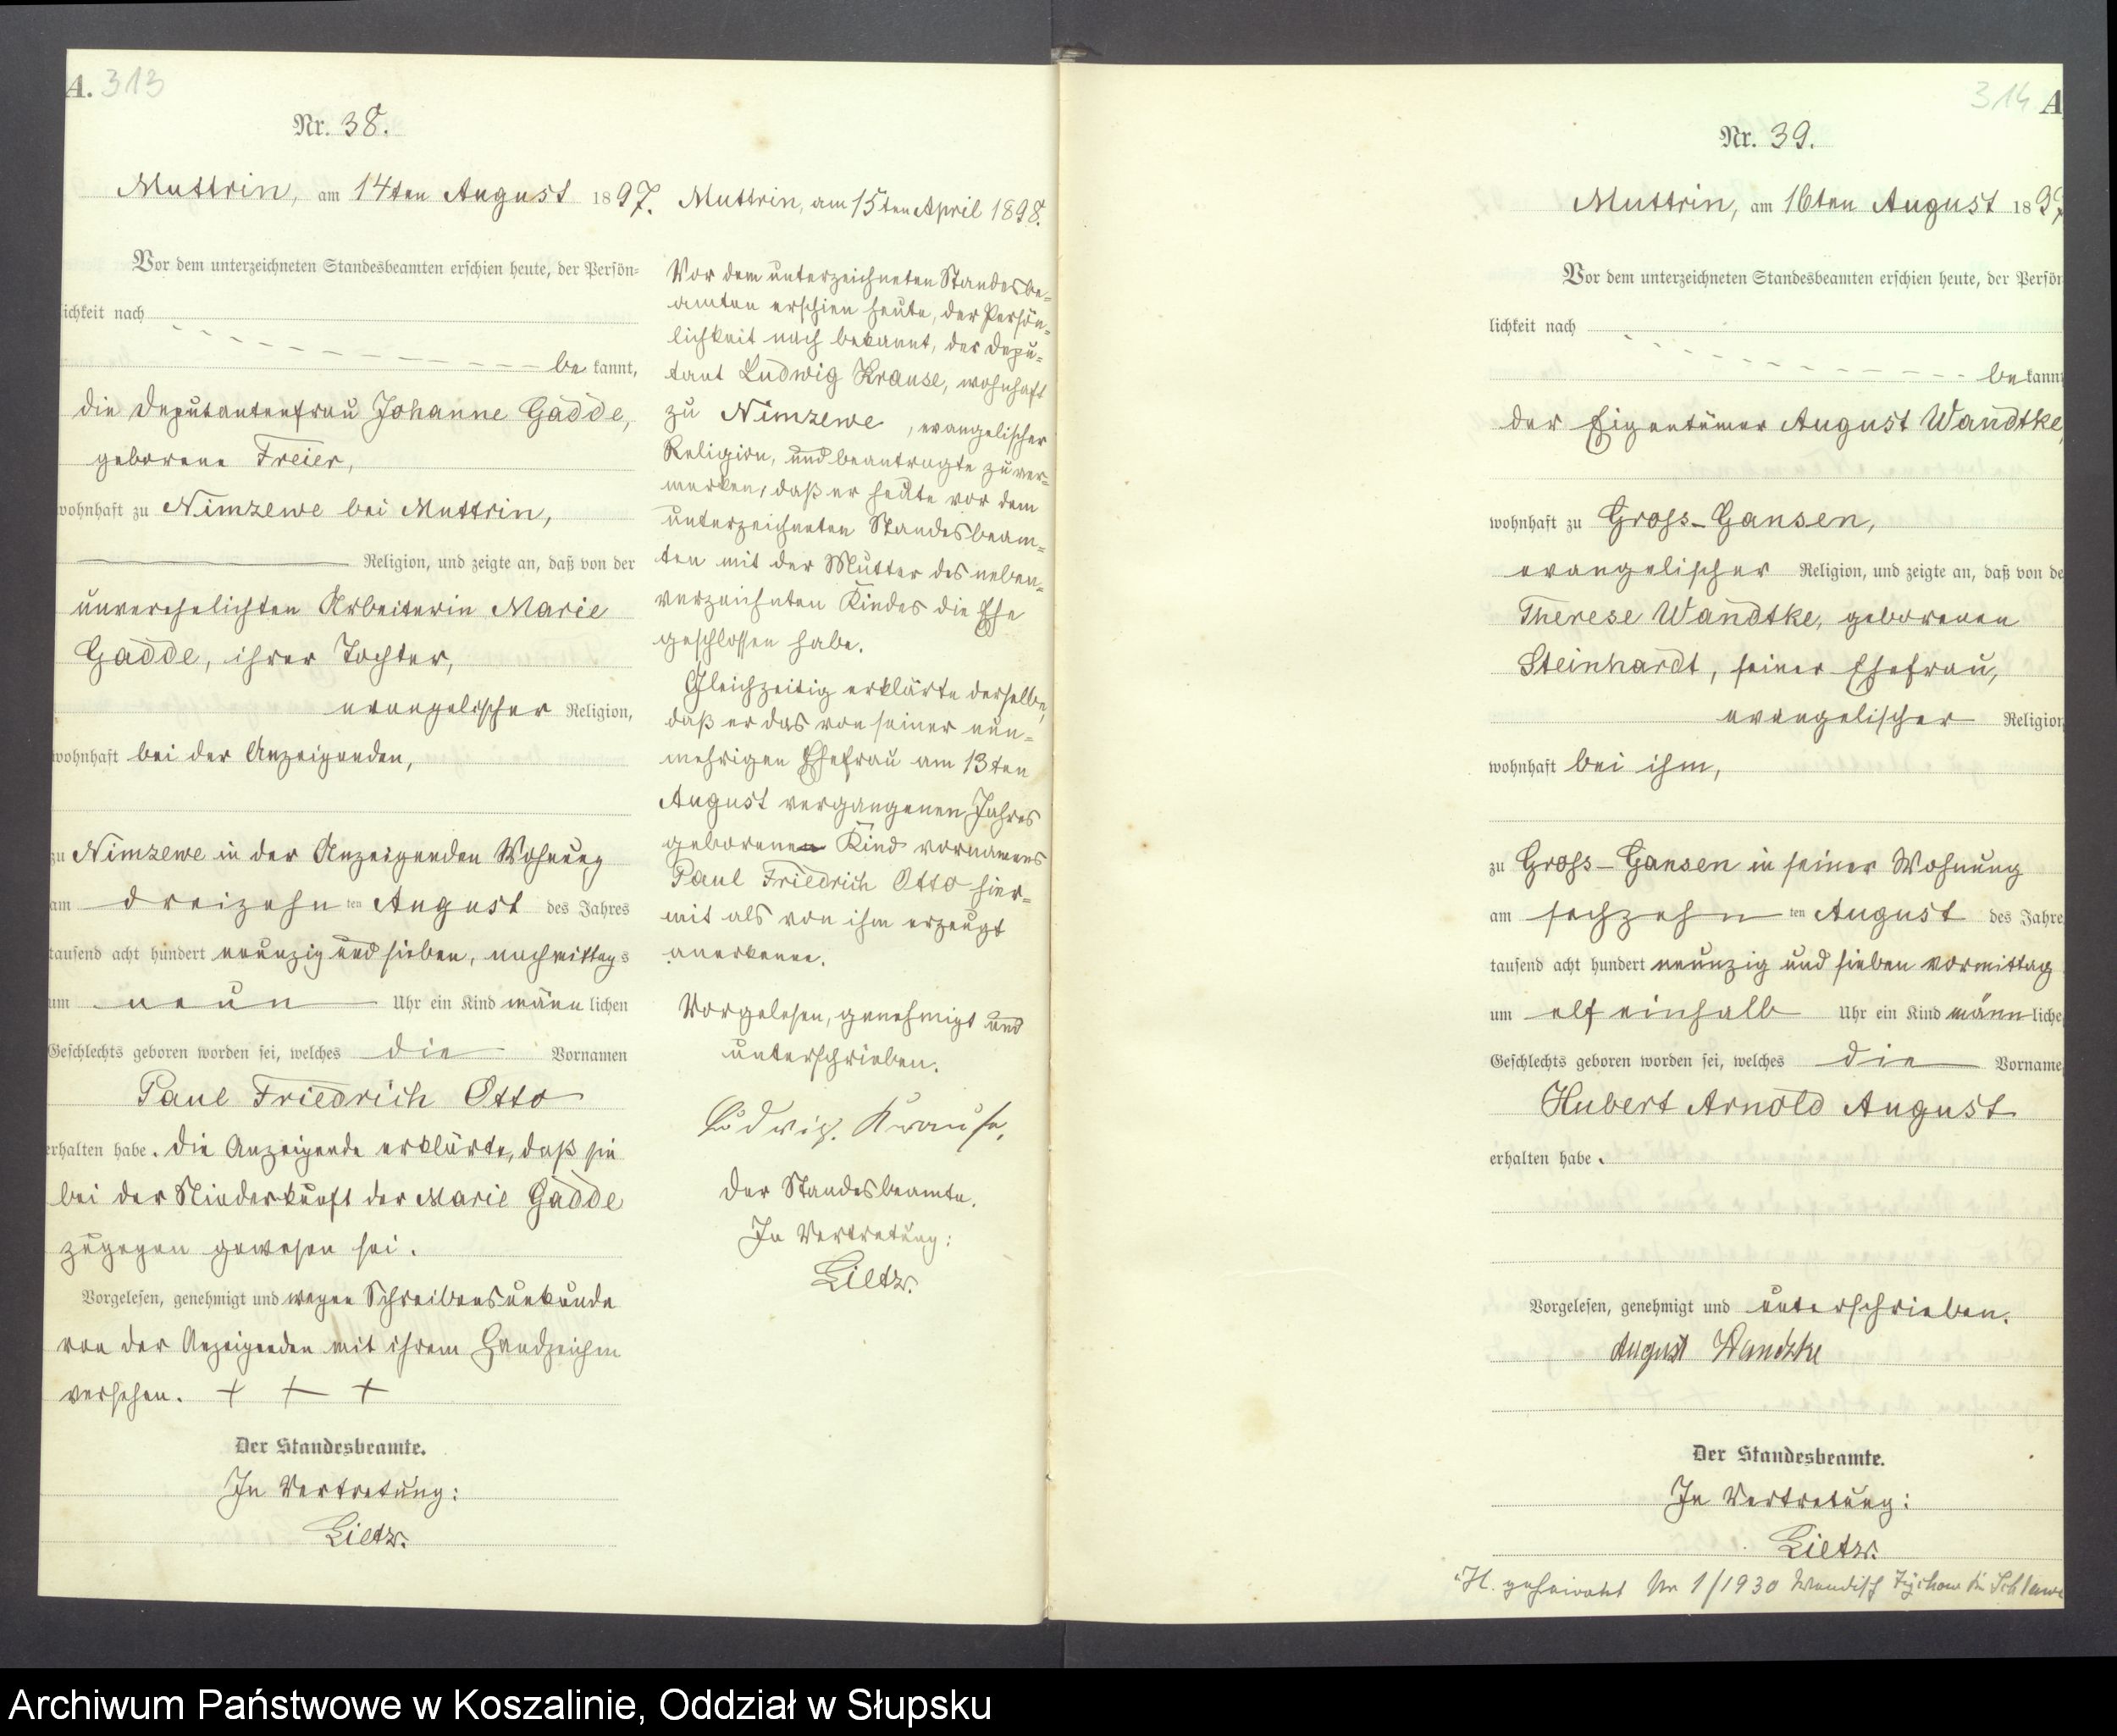 A. 313
Nr. 38.
Muttrin, am 14ten August 1897.
Vor dem unterzeichneten Standesbeamten erschien heute, der Persön-
ichkeit nach
be kannt,
die Deputantenfrau Johanne Gadde,
geborene Freier,
wohnhaft zu Nimzewe bei Muttrin,
Religion, und zeigte an, daß von der
unverehelichten Arbeiterin Marie
Gadde, ihrer Tochter,
evangelischer Religion,
wohnhaft bei der Anzeigenden,
zu Nimzewe in der Anzeigenden Wohnung
am dreizehn ten August des Jahres
tausend acht hundert neunzig und sieben, nachmittags
um neun Uhr ein Kind männ lichen
Geschlechts geboren worden sei, welches die Vornamen
Paul Friedrich Otto
erhalten habe. Die Anzeigende erklärte, daß sie
bei der Niederkunft der Marie Gadde
zugegen gewesen sei.
Vorgelesen, genehmigt und wegen Schreibensunkunde
von der Anzeigenden mit ihrem Handzeichen
versehen. + + +
Der Standesbeamte.
In Vertretung:
Lietz.
Muttrin, am 15ten April 1898.
Vor dem unterzeichneten Standesbe-
amten erschien heute, der Persön-
lichkeit nach bekannt, der Depu-
tant Ludwig Krause, wohnhaft
zu Nimzewe, evangelischer
Religion, und beantragte zu ver-
merken, daß er heute vor dem
unterzeichneten Standesbeam-
ten mit der Mutter des neben-
verzeichneten Kindes die Ehe
geschlossen habe.
Gleichzeitig erklärte derselbe,
daß er das von seiner nun-
mehrigen Ehefrau am 13ten
August vergangenen Jahres
geborene Kind vornamens
Paul Friedrich Otto hier-
mit als von ihm erzeugt
anerkenne.
Vorgelesen, genehmigt und
unterschrieben.
Ludwig. Krause,
Der Standesbeamte.
In Vertretung:
Lietz.
314 A
Nr. 39.
Muttrin, am 16ten August 1897
Vor dem unterzeichneten Standesbeamten erschien heute, der Persön
lichkeit nach
be kannt
der Eigentümer August Wandtke,
wohnhaft zu Gross-Gansen,
evangelischer Religion, und zeigte an, daß von de
Therese Wandtke, geborenen
Steinhardt, seiner Ehefrau,
evangelischer Religion
wohnhaft bei ihm,
zu Gross-Gansen in seiner Wohnung
am sechzehn ten August des Jahre
tausend acht hundert neunzig und sieben vormittag
um elf einhalb Uhr ein Kind männ liche
Geschlechts geboren worden sei, welches die Vorname
Hubert Arnold August
erhalten habe.
Vorgelesen, genehmigt und unterschrieben.
August Wandtke
Der Standesbeamte.
In Vertretung:
Lietz.
H. geheiratet Nr 1/1930 Wendisch Tychow Kr Schlawe
Archiwum Państwowe w Koszalinie, Oddział w Słupsku